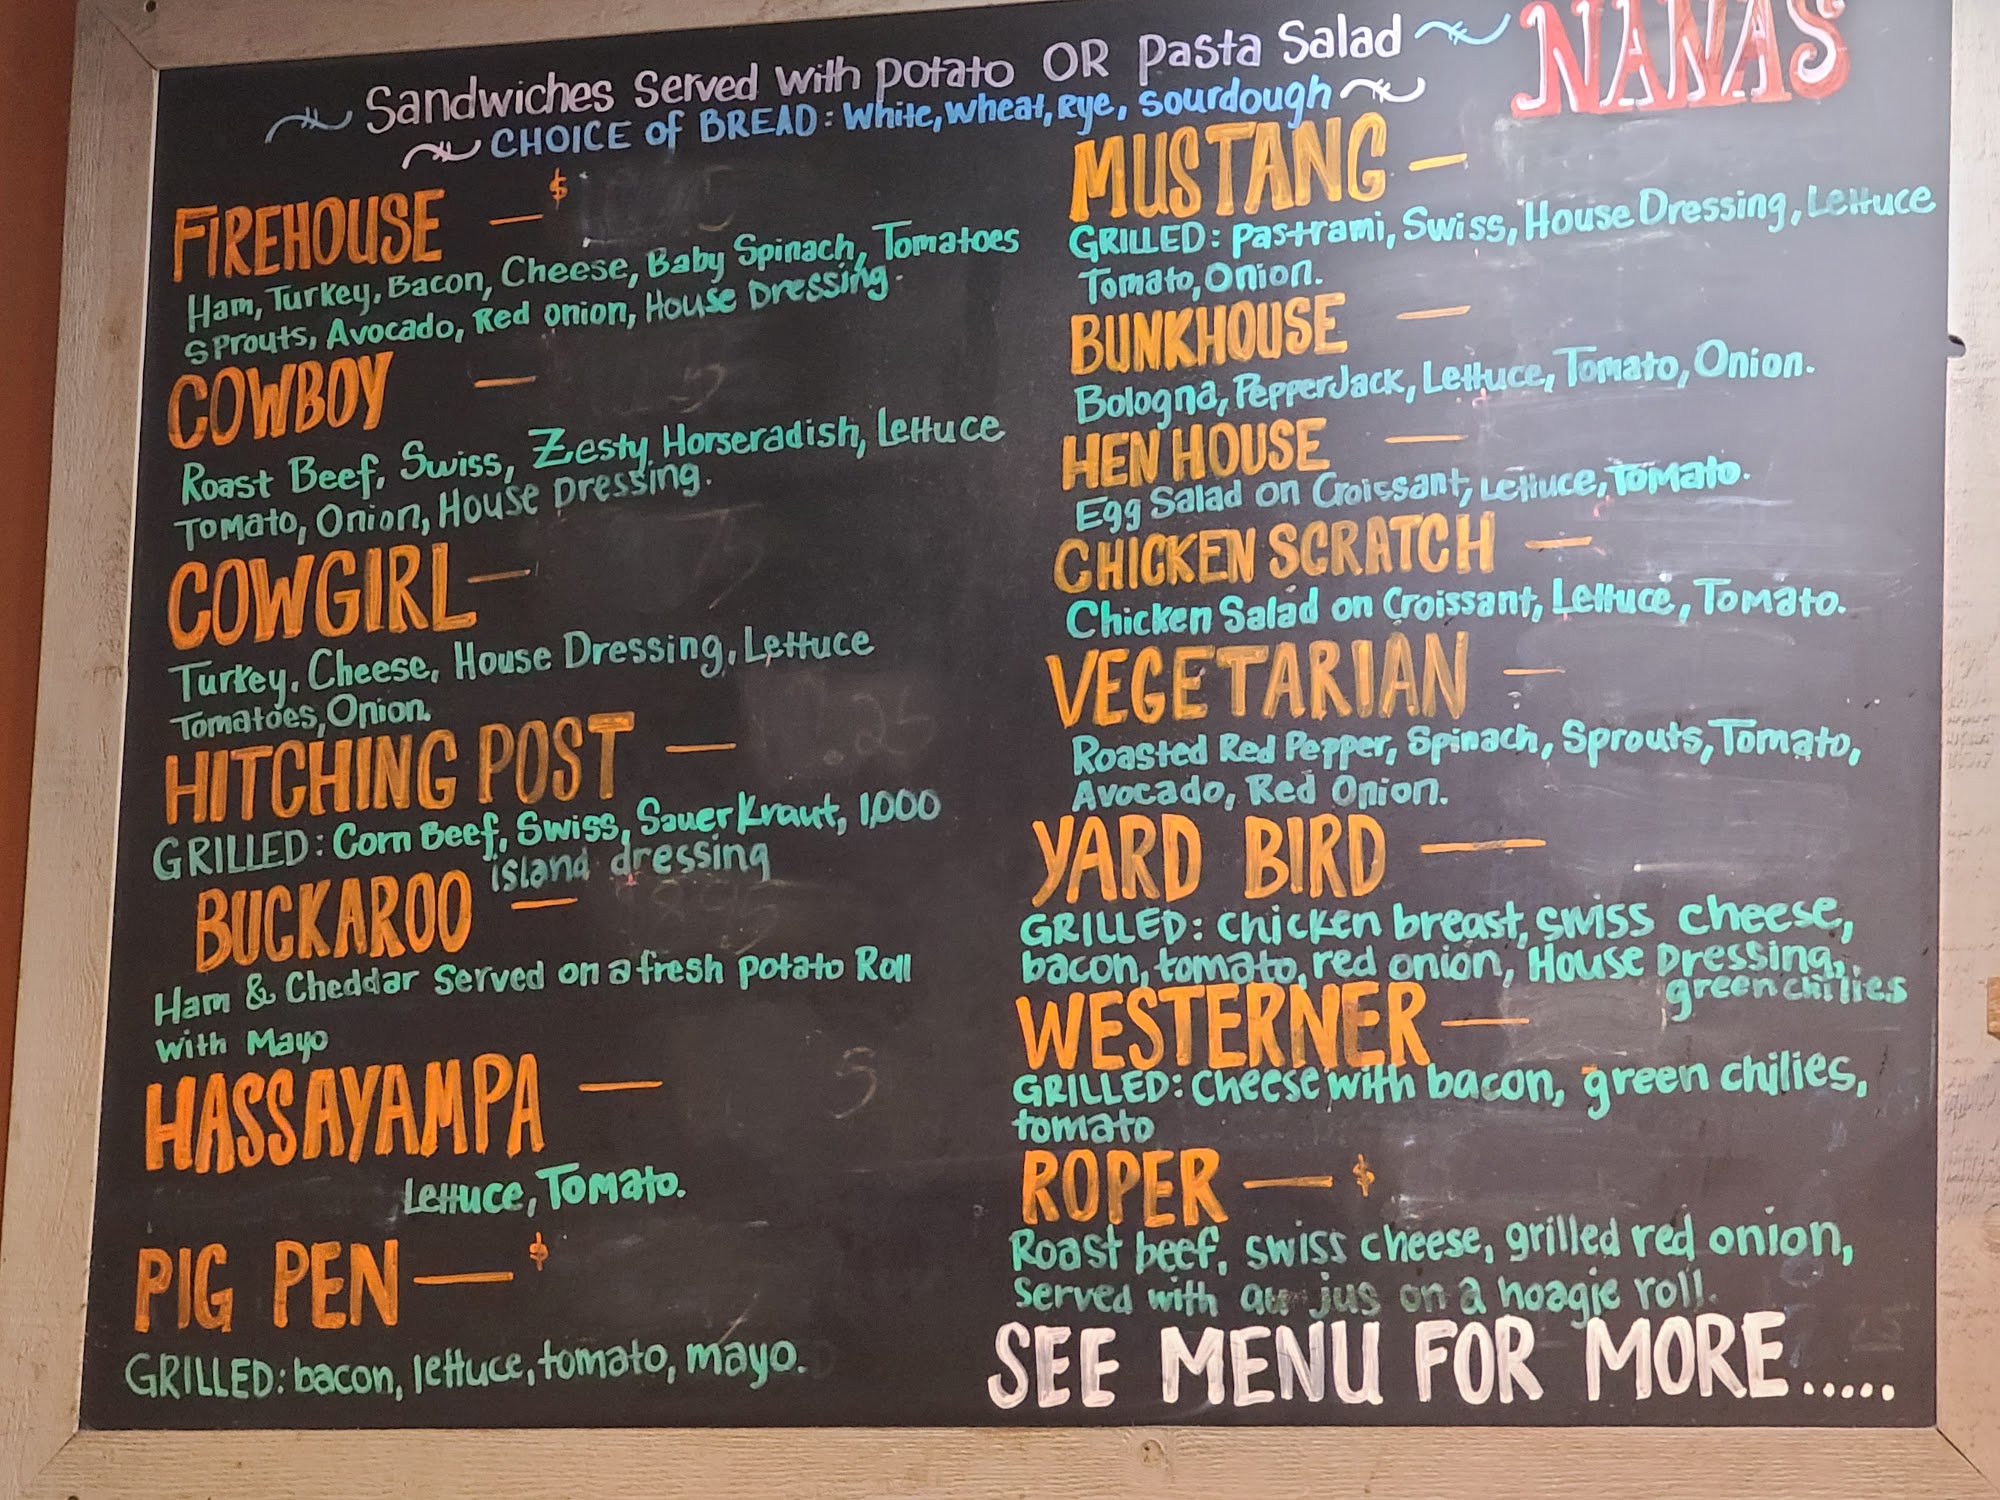 Sandwiches Served with potato OR Pasta Salad
NANAS
CHOICE of BREAD: White, Wheat, Rye, Sourdough
FIREHOUSE — $
Ham, Turkey, Bacon, Cheese, Baby Spinach, Tomatoes
Sprouts, Avocado, Red onion, House Dressing.
COWBOY —
Roast Beef, Swiss, Zesty Horseradish, Lettuce
Tomato, Onion, House Dressing.
COWGIRL —
Turkey, Cheese, House Dressing, Lettuce
Tomatoes, Onion.
HITCHING POST —
GRILLED: Corn Beef, Swiss, SauerKraut, 1,000
island dressing
BUCKAROO —
Ham & Cheddar Served on a fresh potato Roll
with Mayo
HASSAYAMPA —
Lettuce, Tomato.
PIG PEN — $
GRILLED: bacon, lettuce, tomato, mayo.
MUSTANG —
GRILLED: Pastrami, Swiss, House Dressing, Lettuce
Tomato, Onion.
BUNKHOUSE —
Bologna, PepperJack, Lettuce, Tomato, Onion.
HEN HOUSE —
Egg Salad on Croissant, Lettuce, Tomato.
CHICKEN SCRATCH —
Chicken Salad on Croissant, Lettuce, Tomato.
VEGETARIAN —
Roasted Red Pepper, Spinach, Sprouts, Tomato,
Avocado, Red Onion.
YARD BIRD —
GRILLED: Chicken breast, swiss cheese,
bacon, tomato, red onion, House Dressing,
green chilies
WESTERNER —
GRILLED: Cheese with bacon, green chilies,
tomato
ROPER — $
Roast beef, swiss cheese, grilled red onion,
Served with au jus on a hoagie roll.
SEE MENU FOR MORE.....